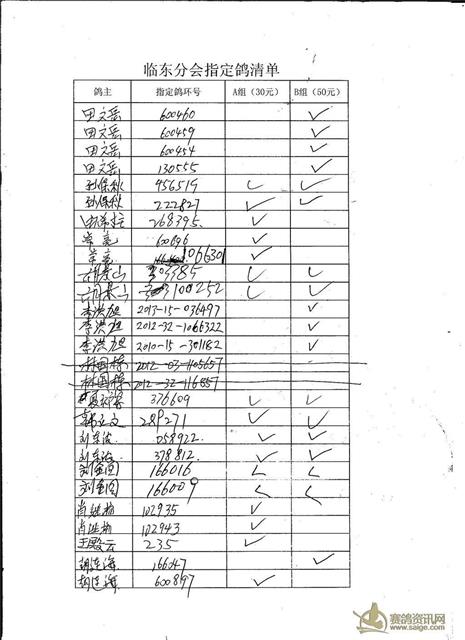 临东分会指定鸽清单
鸽主 指定鸽环号 A组（30元） B组（50元）
田文岳 600460 ✓
田文岳 600459 ✓
田文岳 600454 ✓
田文岳 130555 ✓
孙保秋 956519 ✓ ✓
孙保秋 222827 ✓ ✓
268395 ✓
600696 ✓
1066301 ✓
03385 ✓ ✓
3100252 ✓ ✓
李洪旭 2013-15-036497 ✓
李洪旭 2012-32-1066322 ✓
李洪旭 2010-15-301182 ✓
林国栋 2012-03-1105657
林国栋 2012-32-116857
376609 ✓ ✓
韩文 289271 ✓ ✓
刘东 058922 ✓ ✓
刘东 378812 ✓ ✓
刘金国 166016 ✓ ✓
刘金国 166009 ✓ ✓
肖 102935 ✓
肖 102943 ✓
王殿云 235 ✓
胡连海 166047 ✓
胡连海 600897 ✓
赛鸽资讯网
www.saige.com